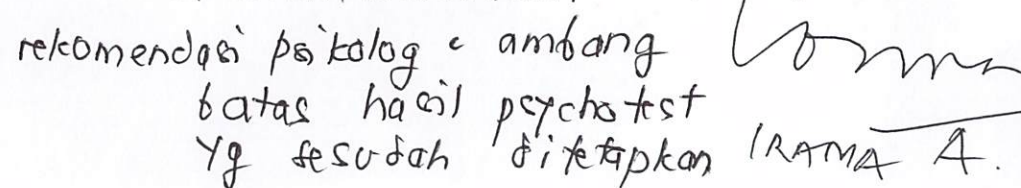 rekomendasi psikolog c ambang
batas hasil psychotest
yg sesudah ditetapkan IRAMA A.